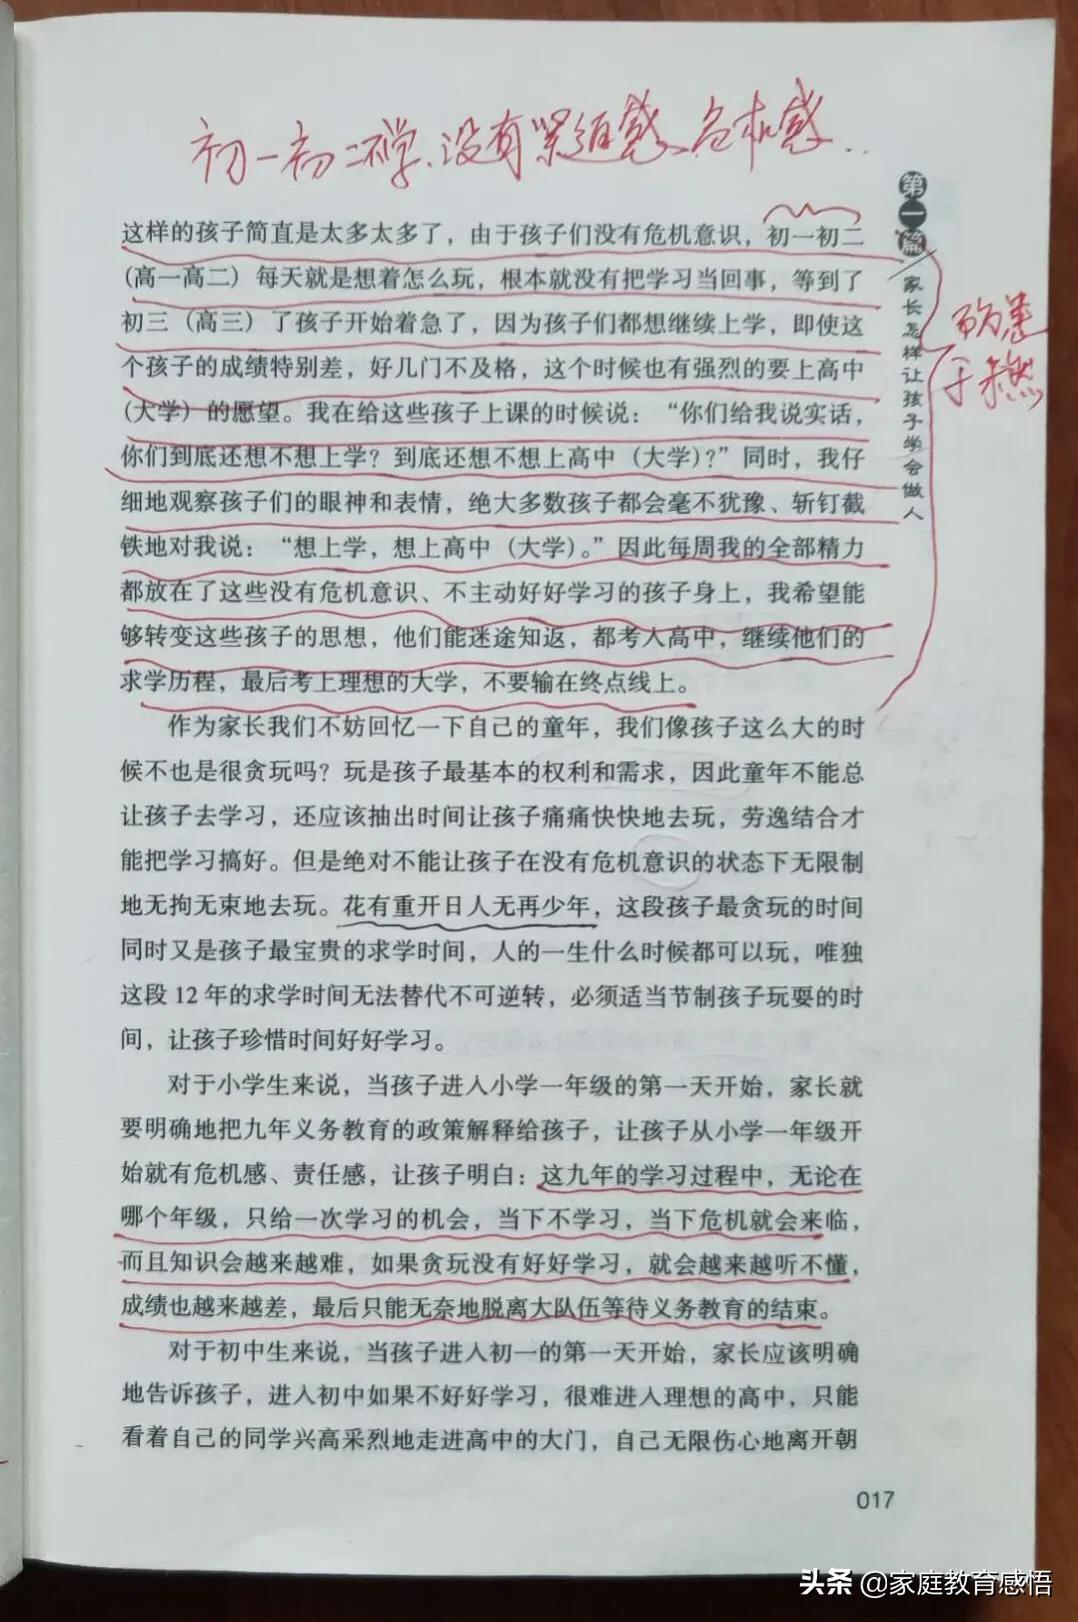 初一初二不学、没有紧迫感、危机感..
这样的孩子简直是太多太多了，由于孩子们没有危机意识，初一初二
（高一高二）每天就是想着怎么玩，根本就没有把学习当回事，等到了
初三（高三）了孩子开始着急了，因为孩子们都想继续上学，即使这
个孩子的成绩特别差，好几门不及格，这个时候也有强烈的要上高中
（大学）的愿望。我在给这些孩子上课的时候说：“你们给我说实话，
你们到底还想不想上学？到底还想不想上高中（大学）？”同时，我仔
细地观察孩子们的眼神和表情，绝大多数孩子都会毫不犹豫、斩钉截
铁地对我说：“想上学，想上高中（大学）。”因此每周我的全部精力
都放在了这些没有危机意识、不主动好好学习的孩子身上，我希望能
够转变这些孩子的思想，他们能迷途知返，都考入高中，继续他们的
求学历程，最后考上理想的大学，不要输在终点线上。
作为家长我们不妨回忆一下自己的童年，我们像孩子这么大的时
候不也是很贪玩吗？玩是孩子最基本的权利和需求，因此童年不能总
让孩子去学习，还应该抽出时间让孩子痛痛快快地去玩，劳逸结合才
能把学习搞好。但是绝对不能让孩子在没有危机意识的状态下无限制
地无拘无束地去玩。花有重开日人无再少年，这段孩子最贪玩的时间
同时又是孩子最宝贵的求学时间，人的一生什么时候都可以玩，唯独
这段 12 年的求学时间无法替代不可逆转，必须适当节制孩子玩耍的时
间，让孩子珍惜时间好好学习。
对于小学生来说，当孩子进入小学一年级的第一天开始，家长就
要明确地把九年义务教育的政策解释给孩子，让孩子从小学一年级开
始就有危机感、责任感，让孩子明白：这九年的学习过程中，无论在
哪个年级，只给一次学习的机会，当下不学习，当下危机就会来临，
而且知识会越来越难，如果贪玩没有好好学习，就会越来越听不懂，
成绩也越来越差，最后只能无奈地脱离大队伍等待义务教育的结束。
对于初中生来说，当孩子进入初一的第一天开始，家长应该明确
地告诉孩子，进入初中如果不好好学习，很难进入理想的高中，只能
看着自己的同学兴高采烈地走进高中的大门，自己无限伤心地离开朝
第一篇 家长怎样让孩子学会做人
防患
于未然
017
头条 @家庭教育感悟